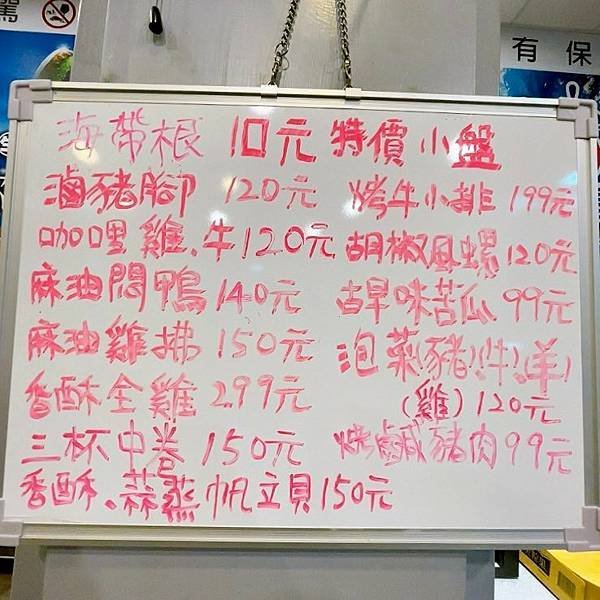 有保
海帶根 10元 特價小盤
滷豬腳 120元
咖哩雞、牛120元
麻油悶鴨 140元
麻油雞拂 150元
香酥全雞 299元
三杯中卷 150元
香酥、蒜蒸帆立貝150元
烤牛小排 199元
胡椒風螺120元
古早味苦瓜 99元
泡菜豬!牛!羊!
(雞)120元
燒鹹豬肉99元